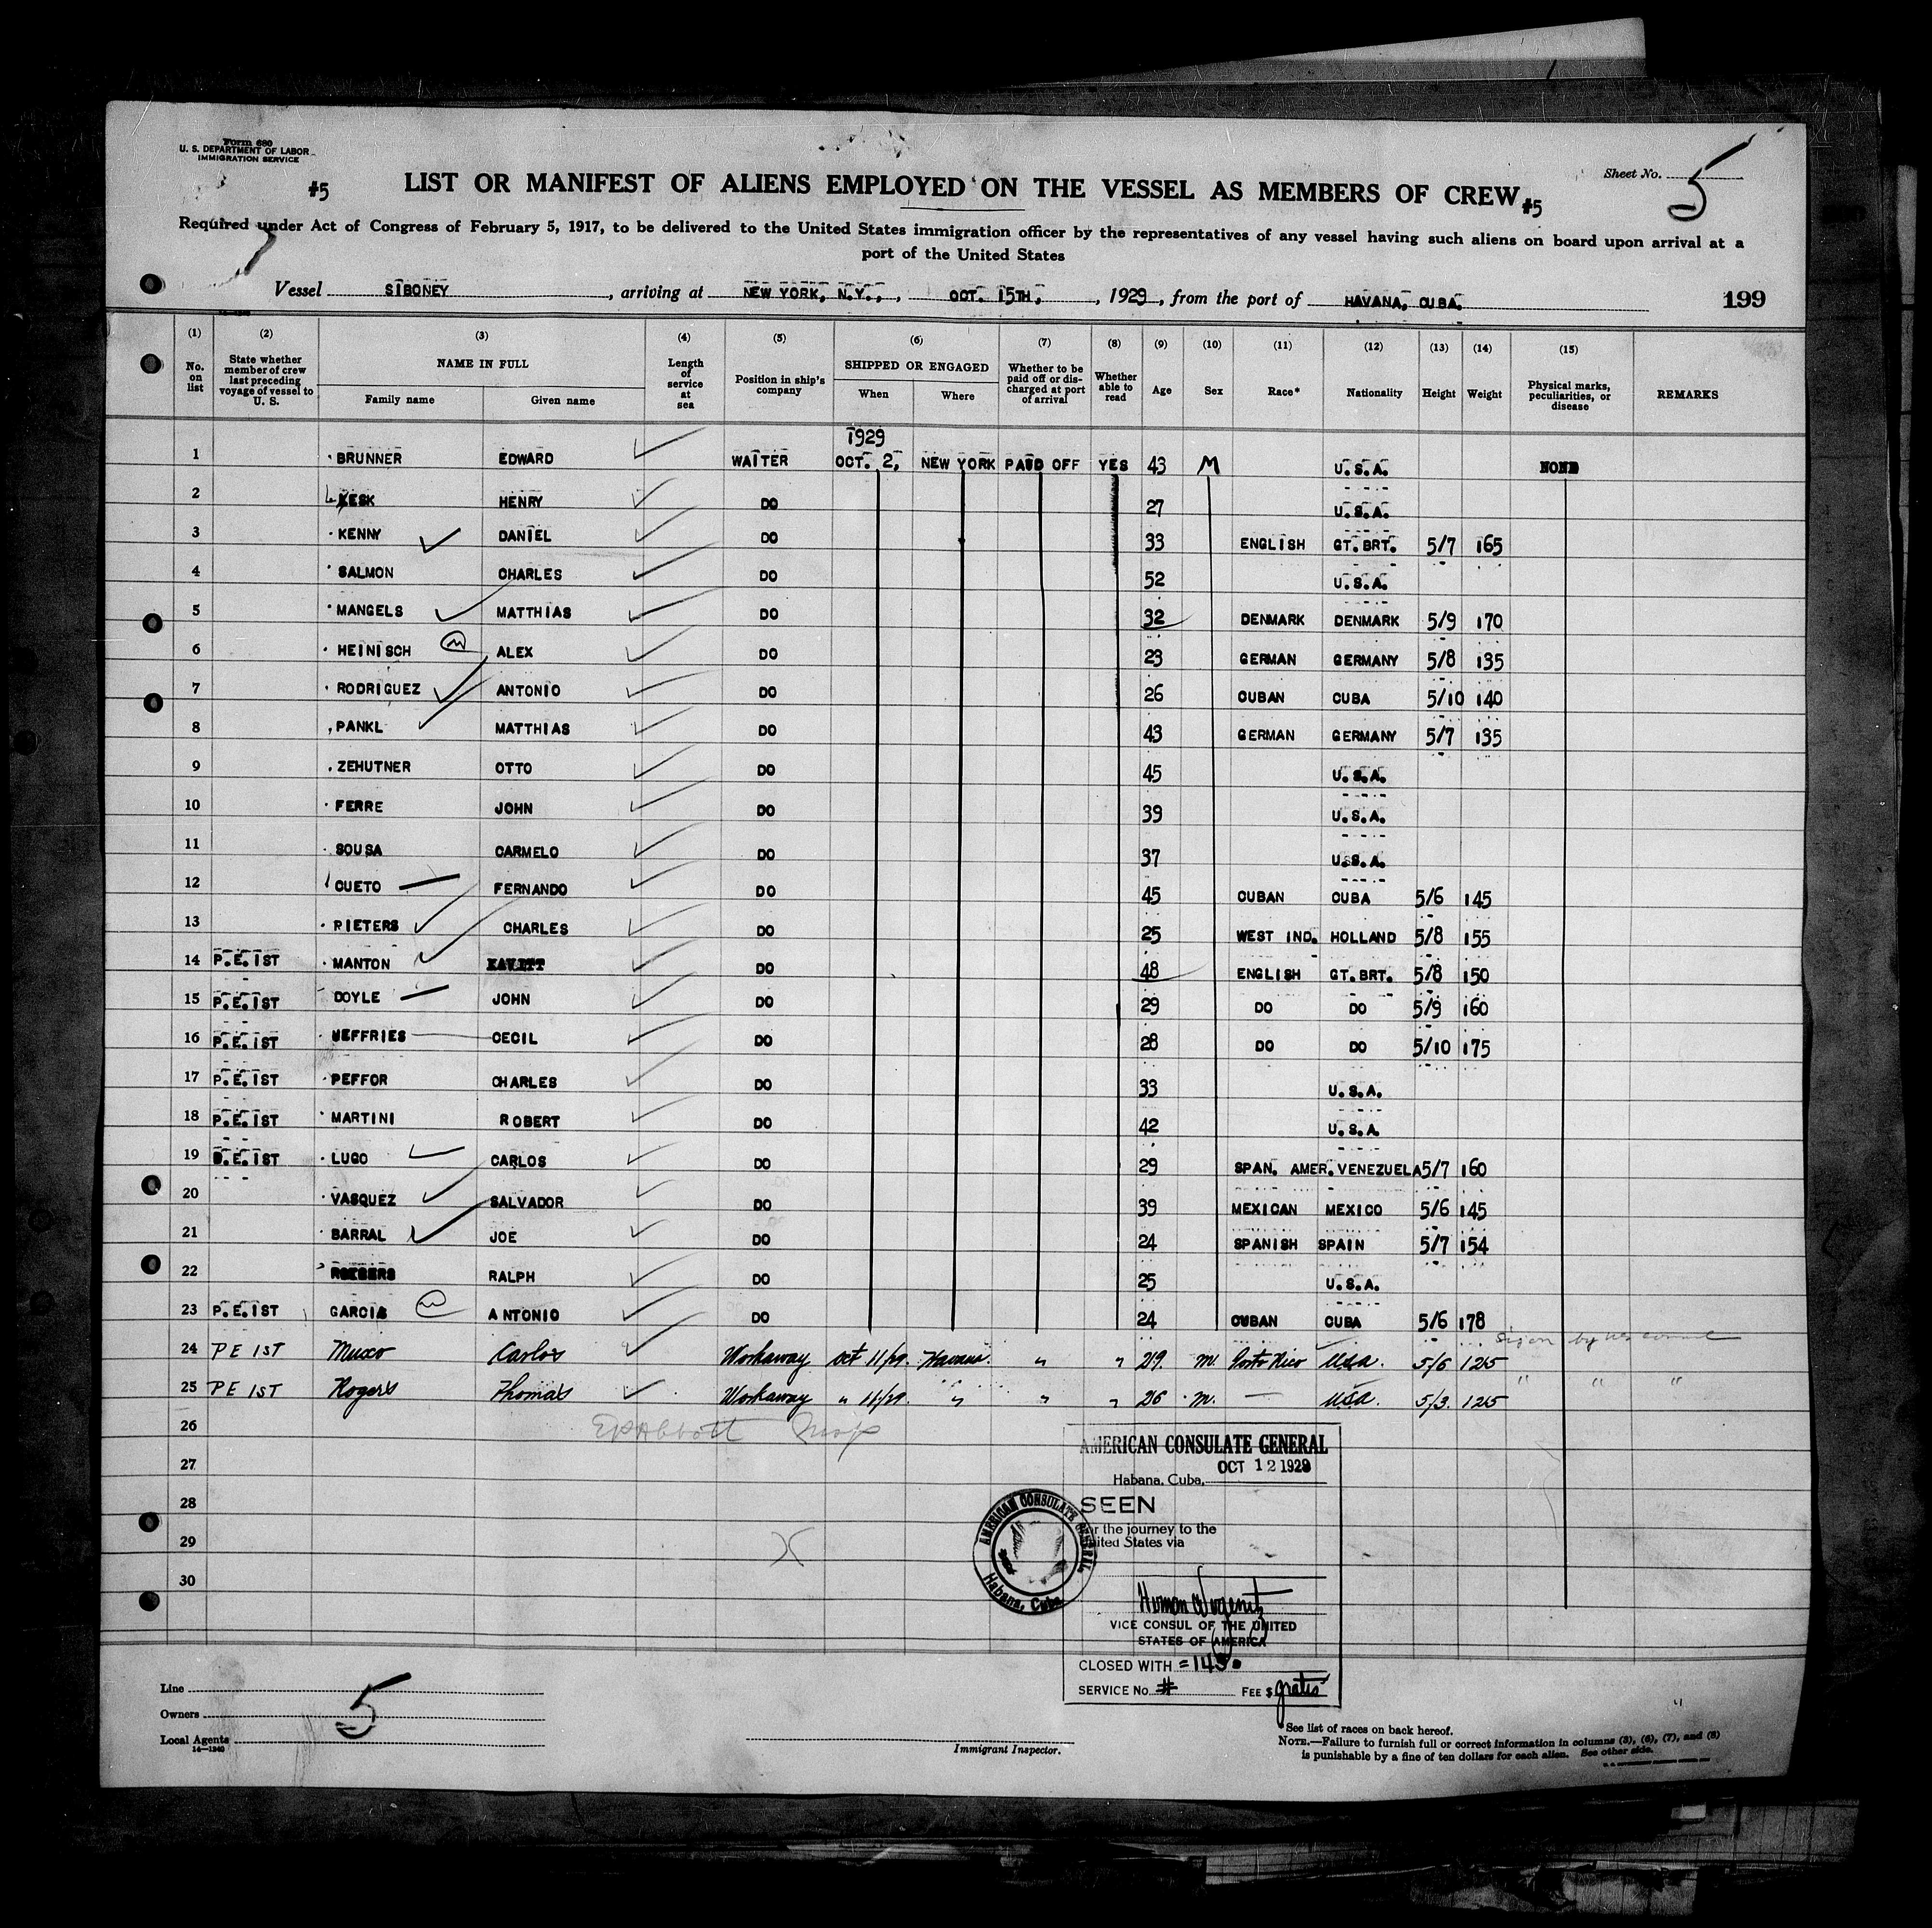 Form 680
U. S. DEPARTMENT OF LABOR
IMMIGRATION SERVICE
Sheet No. 5
#5 LIST OR MANIFEST OF ALIENS EMPLOYED ON THE VESSEL AS MEMBERS OF CREW #5
Required under Act of Congress of February 5, 1917, to be delivered to the United States immigration officer by the representatives of any vessel having such aliens on board upon arrival at a
port of the United States
Vessel SIBONEY, arriving at NEW YORK, N.Y., OCT. 15TH, 1929, from the port of HAVANA, CUBA. 199
(1) (2) (3) (4) (5) (6) (7) (8) (9) (10) (11) (12) (13) (14) (15)
No. on list State whether member of crew last preceding voyage of vessel to U. S. NAME IN FULL Family name Given name Length of service at sea Position in ship's company SHIPPED OR ENGAGED When Where Whether to be paid off or discharged at port of arrival Whether able to read Age Sex Race* Nationality Height Weight Physical marks, peculiarities, or disease REMARKS
1929
1 BRUNNER EDWARD WAITER OCT. 2, NEW YORK PAID OFF YES 43 M U.S.A. NONE
2 LESK HENRY DO 27 U.S.A.
3 KENNY DANIEL DO 33 ENGLISH GT.BRT. 5/7 165
4 SALMON CHARLES DO 52 U.S.A.
5 MANGELS MATTHIAS DO 32 DENMARK DENMARK 5/9 170
6 HEINISCH ALEX DO 23 GERMAN GERMANY 5/8 135
7 RODRIGUEZ ANTONIO DO 26 CUBAN CUBA 5/10 140
8 PANKL MATTHIAS DO 43 GERMAN GERMANY 5/7 135
9 ZEHUTNER OTTO DO 45 U.S.A.
10 FERRE JOHN DO 39 U.S.A.
11 SOUSA CARMELO DO 37 U.S.A.
12 CUETO FERNANDO DO 45 CUBAN CUBA 5/6 145
13 PIETERS CHARLES DO 25 WEST IND. HOLLAND 5/8 155
14 P.E.1ST MANTON DO 48 ENGLISH GT.BRT. 5/8 150
15 P.E.1ST DOYLE JOHN DO 29 DO DO 5/9 160
16 P.E.1ST JEFFRIES CECIL DO 28 DO DO 5/10 175
17 P.E.1ST PEFFOR CHARLES DO 33 U.S.A.
18 P.E.1ST MARTINI ROBERT DO 42 U.S.A.
19 P.E.1ST LUGO CARLOS DO 29 SPAN. AMER. VENEZUELA 5/7 160
20 VASQUEZ SALVADOR DO 39 MEXICAN MEXICO 5/6 145
21 BARRAL JOE DO 24 SPANISH SPAIN 5/7 154
22 RALPH DO 25 U.S.A.
23 P.E.1ST GARCIA ANTONIO DO 24 CUBAN CUBA 5/6 178
24 PE 1ST Muxo Carlos Workaway Oct 11/29. Havana. " " 29. m. Porto Rico USA. 5/6 125
25 PE 1ST Rogers Thomas Workaway " 11/29. " " " 26 m. — USA. 5/3. 125 " " "
26
27
28
29
30
AMERICAN CONSULATE GENERAL
OCT 12 1929
Habana, Cuba,
SEEN
For the journey to the
United States via
AMERICAN CONSULATE GENERAL
Habana, Cuba
VICE CONSUL OF THE UNITED
STATES OF AMERICA
CLOSED WITH =143.
SERVICE No. # FEE $ gratis
Line
Owners 5
Local Agents
14—1240
Immigrant Inspector.
*See list of races on back hereof.
NOTE.—Failure to furnish full or correct information in columns (3), (6), (7), and (8)
is punishable by a fine of ten dollars for each alien. See other side.